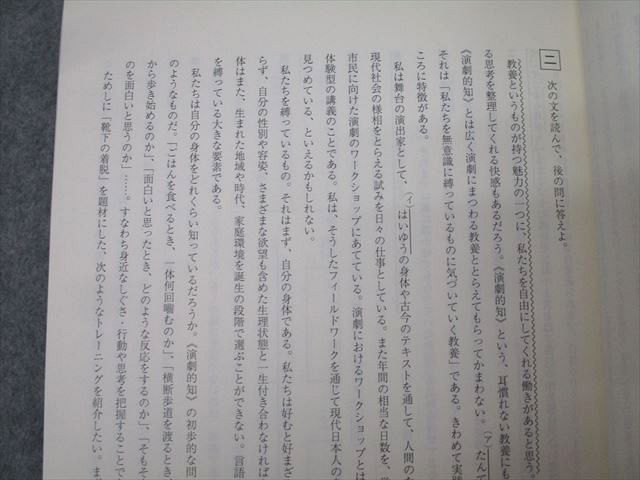 二 次の文を読んで、後の問に答えよ。
教養というものが持つ魅力の一つに、私たちを自由にしてくれる働きがあると思う。
る思考を整理してくれる快感もあるだろう。《演劇的知》という、耳慣れない教養にも
《演劇的知》とは広く演劇にまつわる教養ととらえてもらってかまわない。(ア)たんて
それは「私たちを無意識に縛っているものに気づいていく教養」である。きわめて実践
ころに特徴がある。
私は舞台の演出家として、(イ)はいゆうの身体や古今のテキストを通して、人間の
現代社会の様相をとらえる試みを日々の仕事としている。また年間の相当な日数を、
市民に向けた演劇のワークショップにあてている。演劇におけるワークショップとは
体験型の講義のことである。私は、そうしたフィールドワークを通じて現代日本人の
見つめている、といえるかもしれない。
私たちを縛っているもの。それはまず、自分の身体である。私たちは好むと好まざ
らず、自分の性別や容姿、さまざまな欲望も含めた生理状態と一生付き合わなければ
体はまた、生まれた地域や時代、家庭環境を誕生の段階で選ぶことができない。言語
を縛っている大きな要素である。
私たちは自分の身体をどれくらい知っているだろうか。《演劇的知》の初歩的な問
のようなものだ。「ごはんを食べるとき、一体何回噛むのか」、「横断歩道を渡るとき、
から歩き始めるのか」、「面白いと思ったとき、どのような反応をするのか」、「そもそ
のを面白いと思うのか」……。すなわち身近なしぐさ・行動や思考を把握することで
ためしに「靴下の着脱」を題材にした、次のようなトレーニングを紹介したい。ま